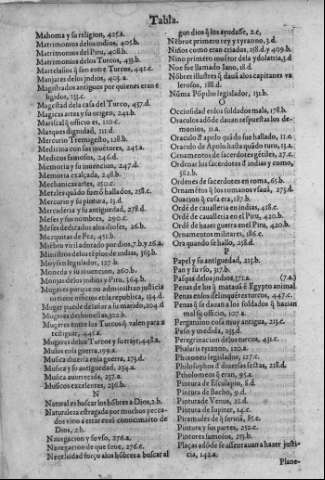 Tabla.
Mahoma y su religion, 425.a.
Matrimonios delos indios, 405.b.
Matrimonios del Piru, 408.b.
Matrimonios delos Turcos, 433.b.
Martelajios q̃ son entre Turcos, 442.c.
Manjares delos indios, 403.a.
Magistrados antiguos por quienes eran e
ligidos, 133.c.
Magestad dela casa del Turco, 437.d.
Magicas artes y su origen, 241.b.
Marisal q̃ officio es, 120.c.
Marques dignidad, 111.d.
Mercurio Tremegisto, 128.b.
Medicina con sus inuentores, 245.a.
Medicos famosos, 246.d.
Memoria y su inuencion, 247.d.
Memoria ex alçada, 248.b.
Mechanicas artes, 250.c.
Metales quãdo fuerõ hallados, 258.c.
Mercurio y su pintura, 13.d.
Mercaderia y su antiguedad, 278.d
Meses y sus nombres, 290.c.
Meses dedicados alos dioses, 26.b.
Mezquitas de Fez, 451.b.
Miẽbro viril adorado por dios, 7.b.y 26.a.
Ministros delos tẽplos de indios, 365.b.
Moysen legislador, 127.b.
Moneda y su inuencion, 260.b.
Monjas delos indias y Piru, 364.b.
Mugeres porque no administran justicia
ni tienen officios en la republica, 134.d.
Muger puede dexar a su marido, 204.d
Mugeres entre los Turcos q̃ valen para a
testiguar, 442.c.
Mugares delos Turcos y su traje, 448.a.
Mulos enla guerra, 199.a.
Musica duerta enla guerra, 175.d.
Musica y su antiguedad, 254.a.
Musica aumentada, 257.a.
Musicos excelentes, 256.b.
N
Natural es buscar los hõbres a Dios, 2.b.
Naturaleza estragada por muchos pecca-
dos vino a estar en el conoscimiento de
Dios, 2.b.
Nauegacion y su vso, 276.a.
Nauegacion de que siruẽ, 276.c.
Necessidad forço alos hõbres a buscar al
gun dios q̃ los ayudasse, 2.c,
Nebrot primero rey y tyranno, 3.d
Niños como eran criados, 218.d.y 409.b.
Nino primero inuẽtor dela ydolatria, 3.d
Noe fue llamado Iano, 18.d
Nobres illustres q̃ dauã alos capitanes va
lerosos, 188.d.
Numa Põpilio legislador, 131.b.
O
Occiosidad enlos soldados mala, 178.b.
Oraculos adõ de dauan respuestas los de-
monios, 11.a.
Oraculo d̃ apolo quãdo fue hallado, 11.a.
Oraculo de Apolo hasta quãdo turo, 13.a.
Ornamentos de sacerdotes gẽtiles, 27.c.
Ordenar los sacerdotes d̃ indias y como,
362.b.
Ordenes de sacerdotes en roma, 65.b.
Ornamẽtos q̃ los romanos vsauã, 273.d.
Ouacion q̃ cosa era, 187.b.
Ordẽ de caualleria en indias, 428.c.
Ordẽ de caualleria en el Piru, 420.b.
Ordẽ de hazer guerra en el Piru, 420.b.
Ornamentos militares, 186.c.
Ora quando se hallo, 258.d.
P
Papel y su antiguedad, 215.b.
Pan y su ro, 317.b.
Pasquas delos indios, 371.c.
Penas de los q̃ mataua ẽ Egypto animal
Penas enlos delinquẽtes turcos, 447.c.
Penas q̃ se dauan a los soldados q̃ hazian
mal su officio, 107.a.
Pergamino cosa muy antigua, 213.c.
Peso y medida, 255.d.
Peregrinacion delos turcos, 432.b.
Phalaris tyranno, 120.a.
Phoroneo legislador, 127.c.
Philosophos d̃ diuersas sectas, 218.d.
Ptholomeos q̃ eran, 95.a.
Pintura de Esculapio, 8.d.
Pintura de Bacho, 9.d.
Pintura de Venus, 21.d.
Pintura de Iupiter, 14.c.
Piramides de q̃ seruiã, 85.c.
Pintura y sus partes, 252.c.
Pintores famosos, 253.b.
Plaças adõ de se assentauan a hazer justi-
cia, 142.a.
Plane-